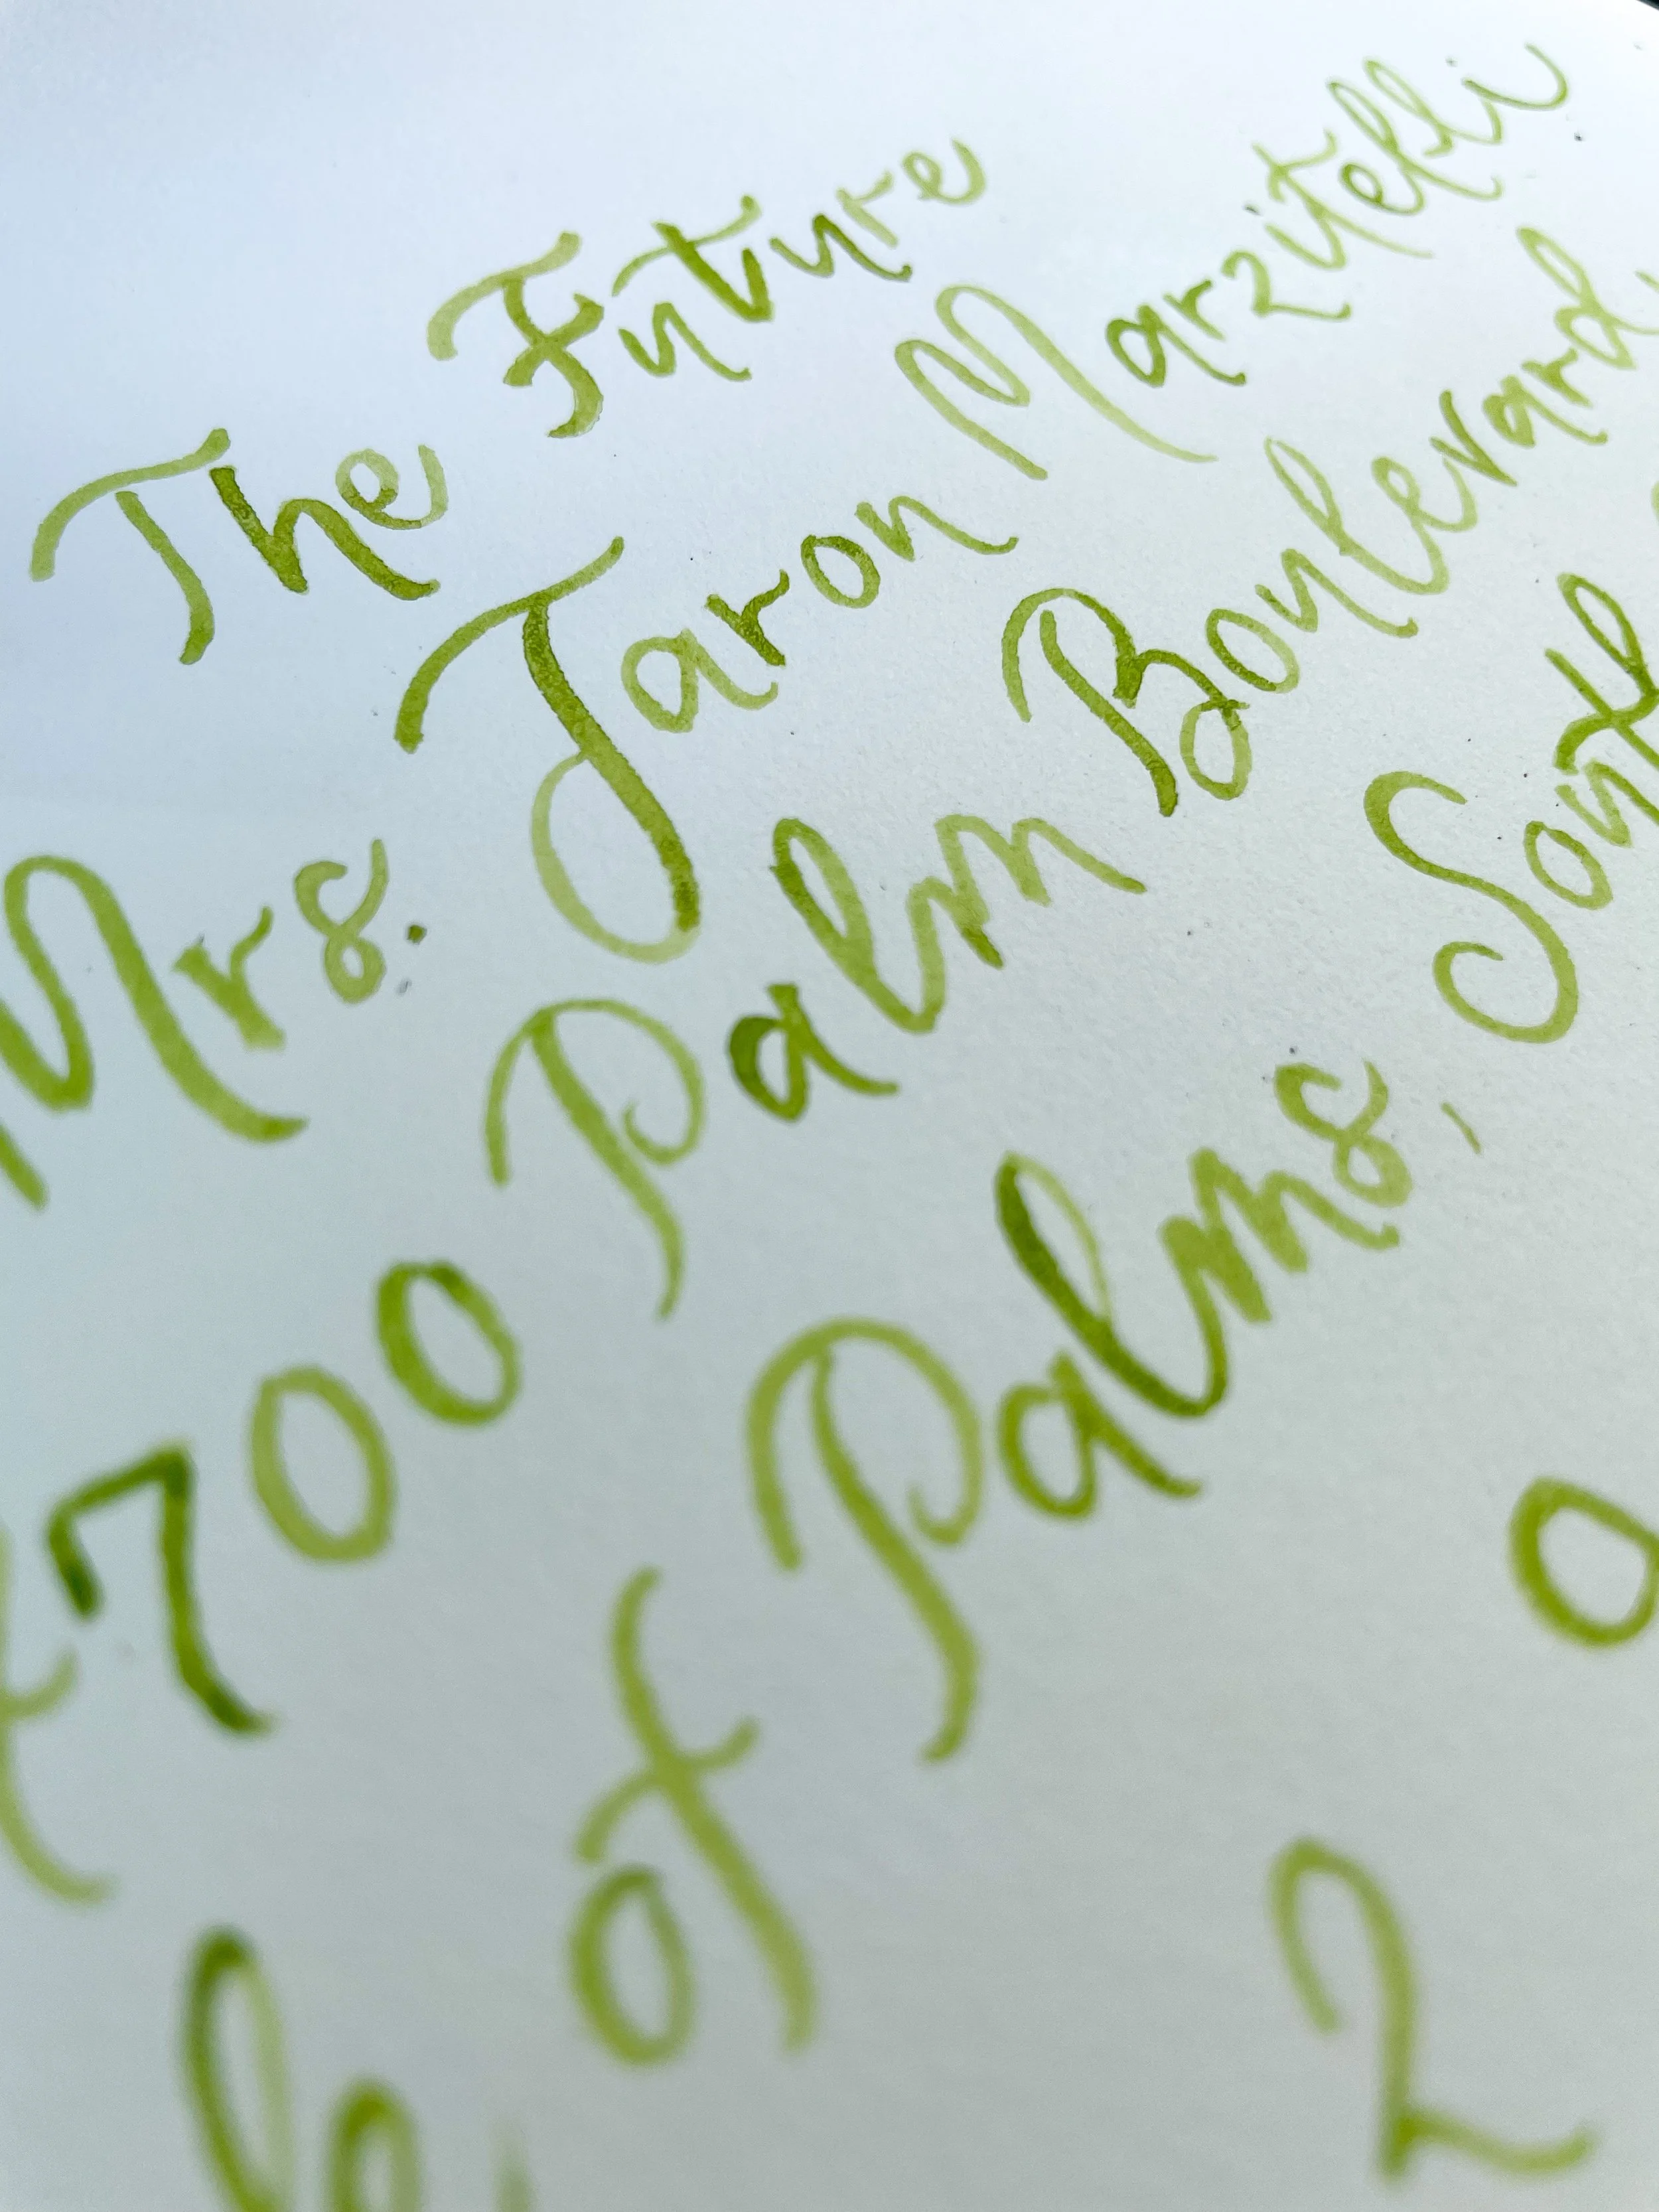 The Future
Mrs. Jaron Marzitelli
700 Palm Boulevard
of Palms, South
2